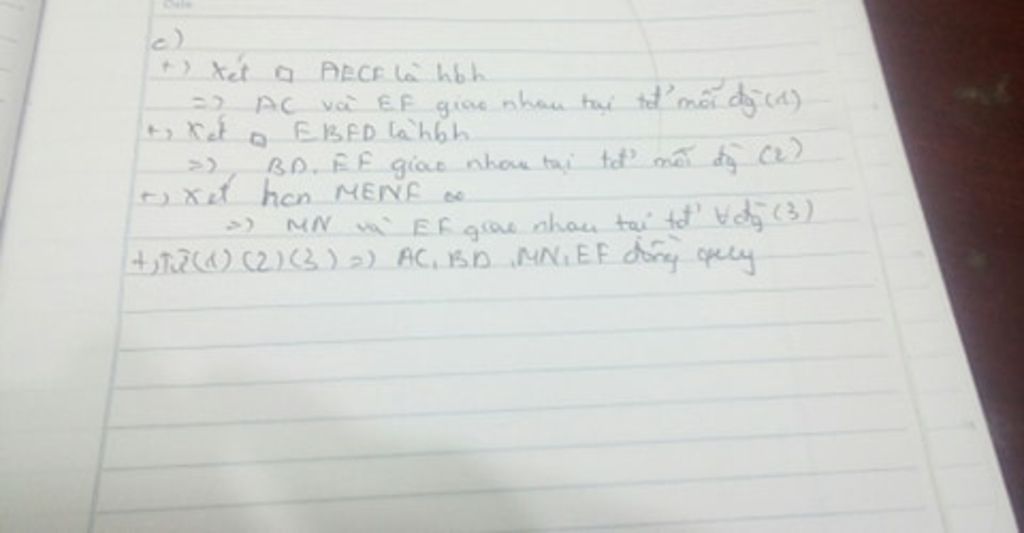 c)
+) Xét □ AECF là hbh
=> AC và EF giao nhau tại tđ' mỗi đg (1)
+, Xét □ EBFD là hbh
=> BD, EF giao nhau tại tđ' mỗi đg (2)
+, Xét hcn MENF có
=> MN và EF giao nhau tại tđ' đg (3)
+, Từ (1) (2) (3) => AC, BD, MN, EF đồng quy